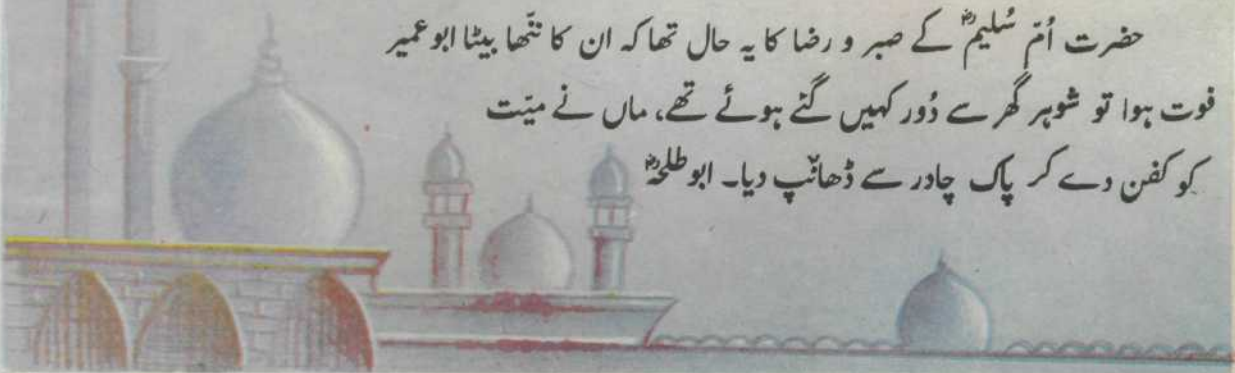 حضرت اُمّ سُلیمؓ کے صبر و رضا کا یہ حال تھا کہ ان کا ننّھا بیٹا ابو عمیر
فوت ہوا تو شوہر گھر سے دُور کہیں گئے ہوئے تھے، ماں نے میّت
کو کفن دے کر پاک چادر سے ڈھانّپ دیا۔ ابو طلحہؓ